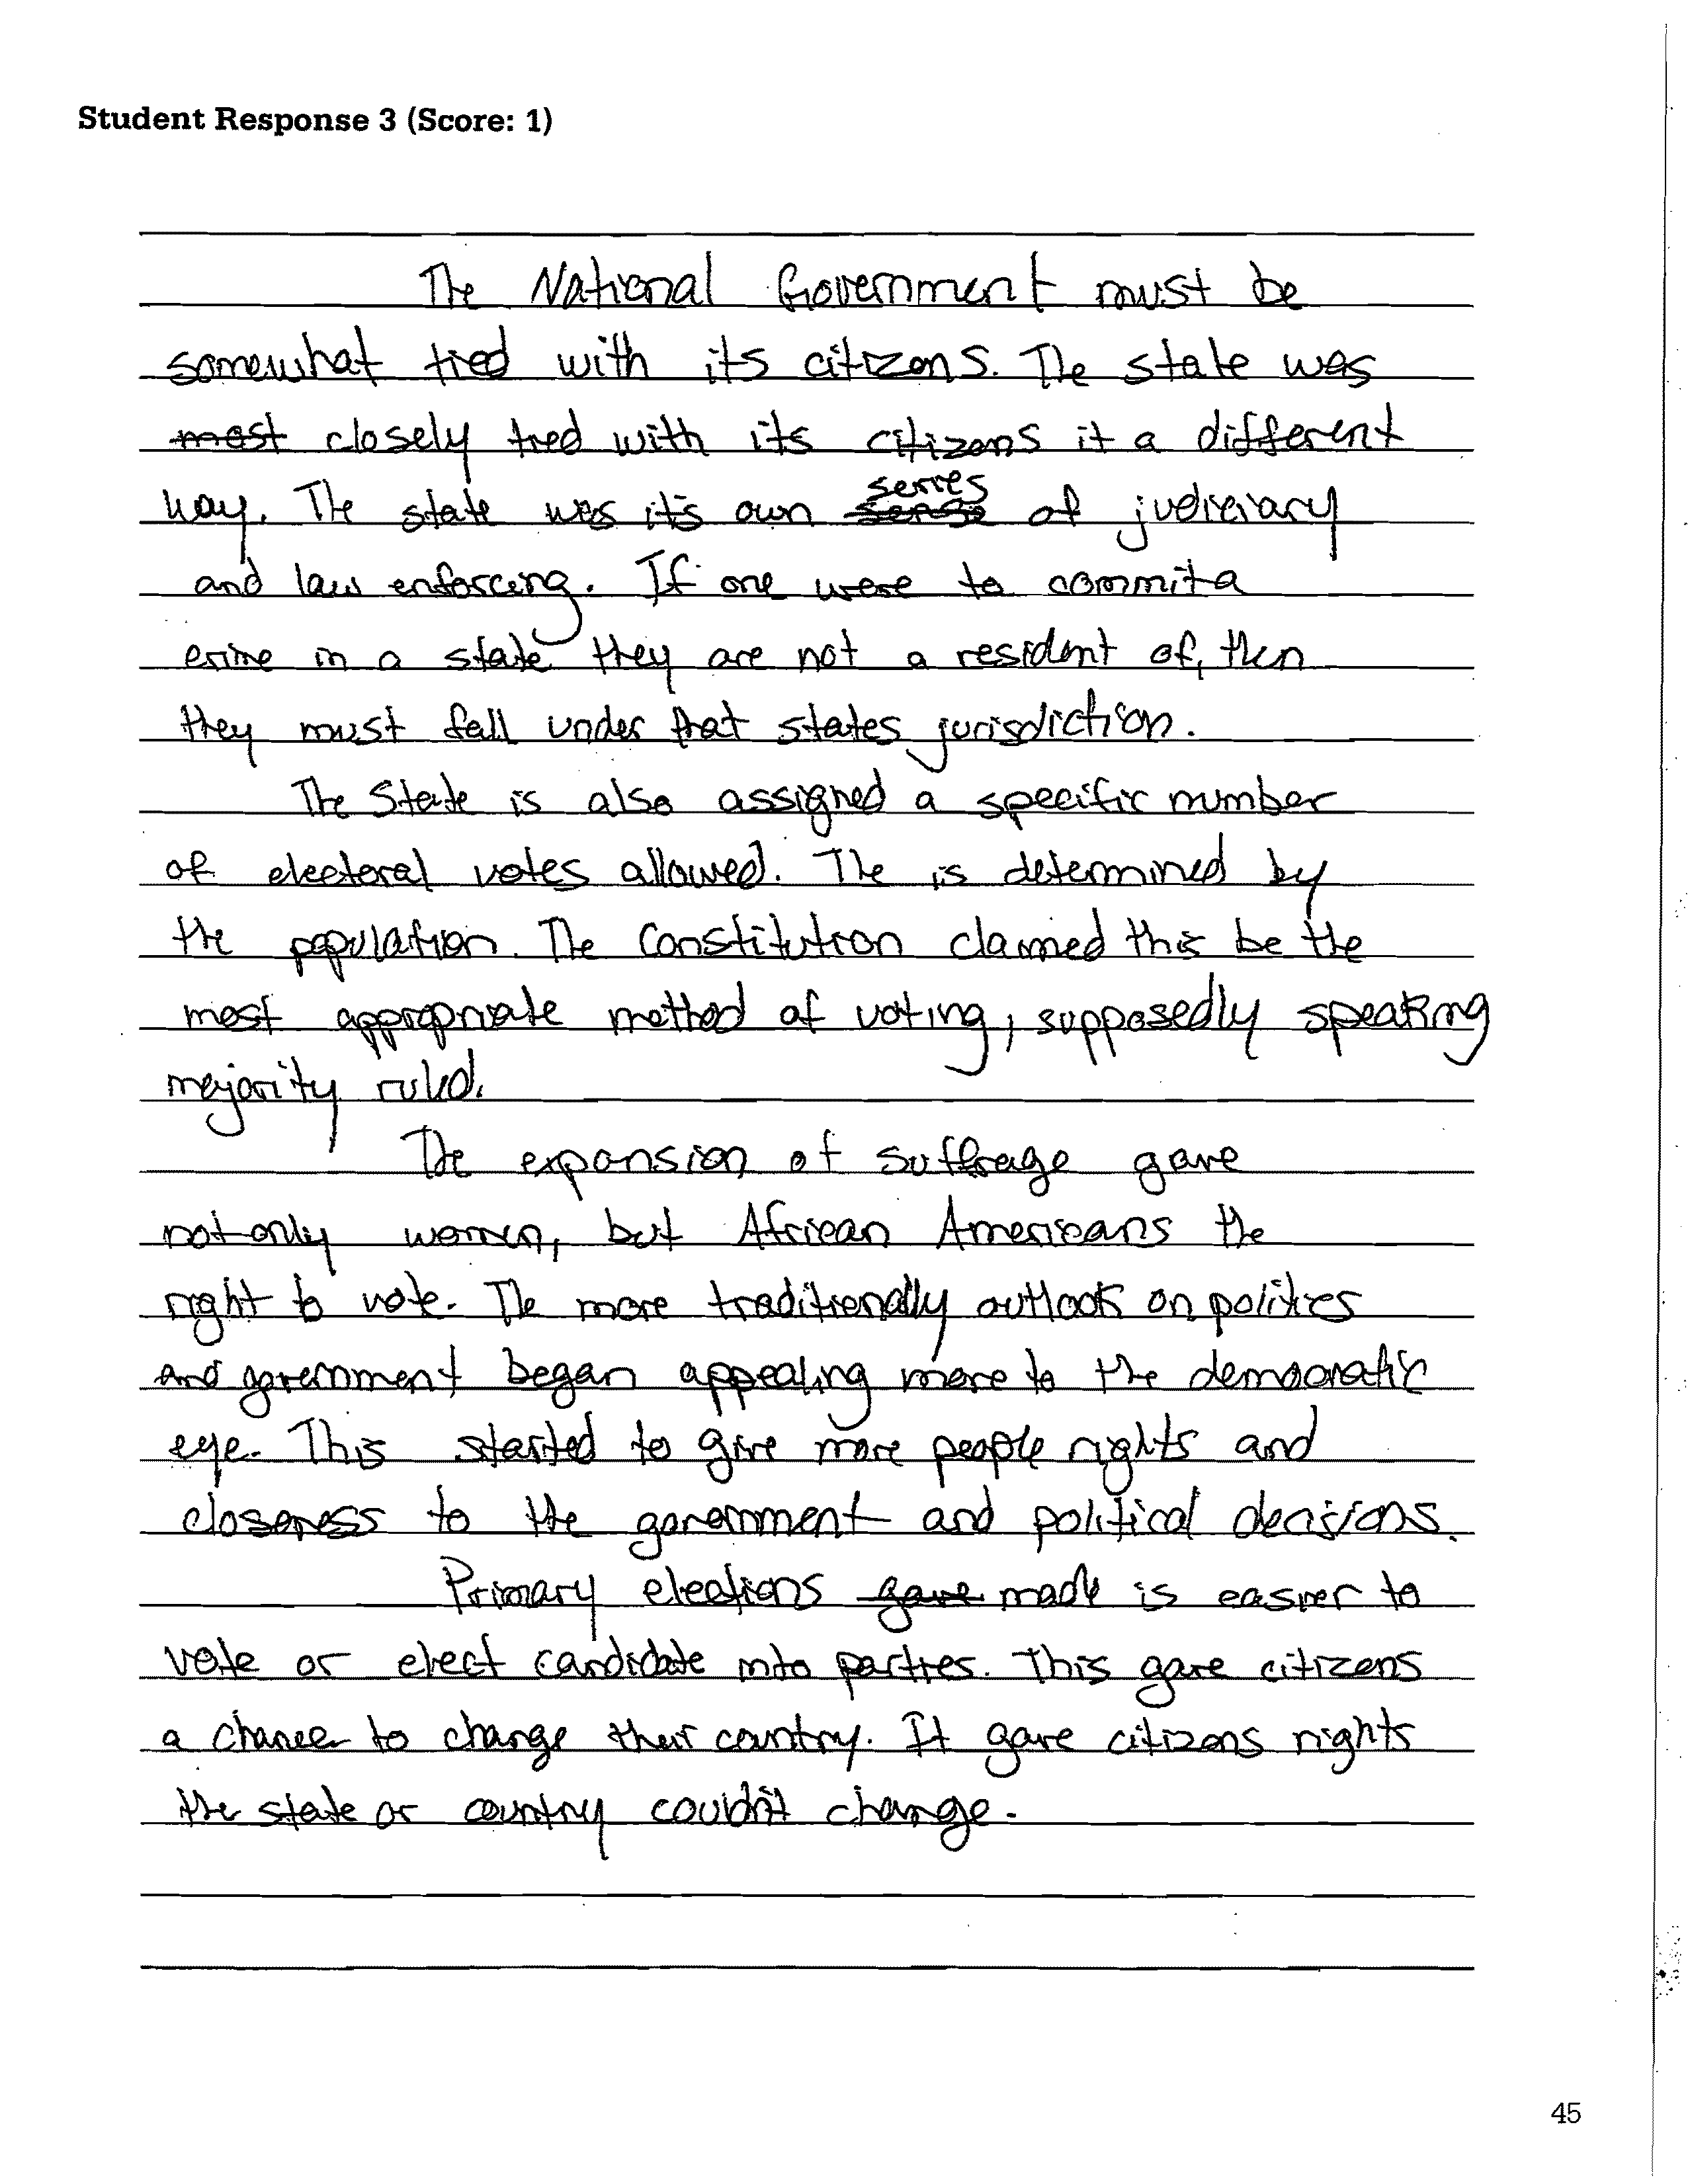 Student Response 3 (Score: 1)
The National Government must be
somewhat tied with its citizens. The state was
most closely tied with its citizens it a different
way. The state was it's own sense series of judiciary
and law enforcing. If one were to commit a
crime in a state they are not a resident of, then
they must fall under that states jurisdiction.
The State is also assigned a specific number
of electoral votes allowed. The is determined by
the population. The Constitution claimed this be the
most appropriate method of voting, supposedly speaking
majority ruled.
The expansion of suffrage gave
not only women, but African Americans the
right to vote. The more traditionally outlook on politics
and government began appealing more to the democratic
eye. This started to give more people rights and
closeness to the government and political decisions.
Primary elections gave made is easier to
vote or elect candidate into parties. This gave citizens
a chance to change their country. It gave citizens rights
the state or country couldn't change.
45